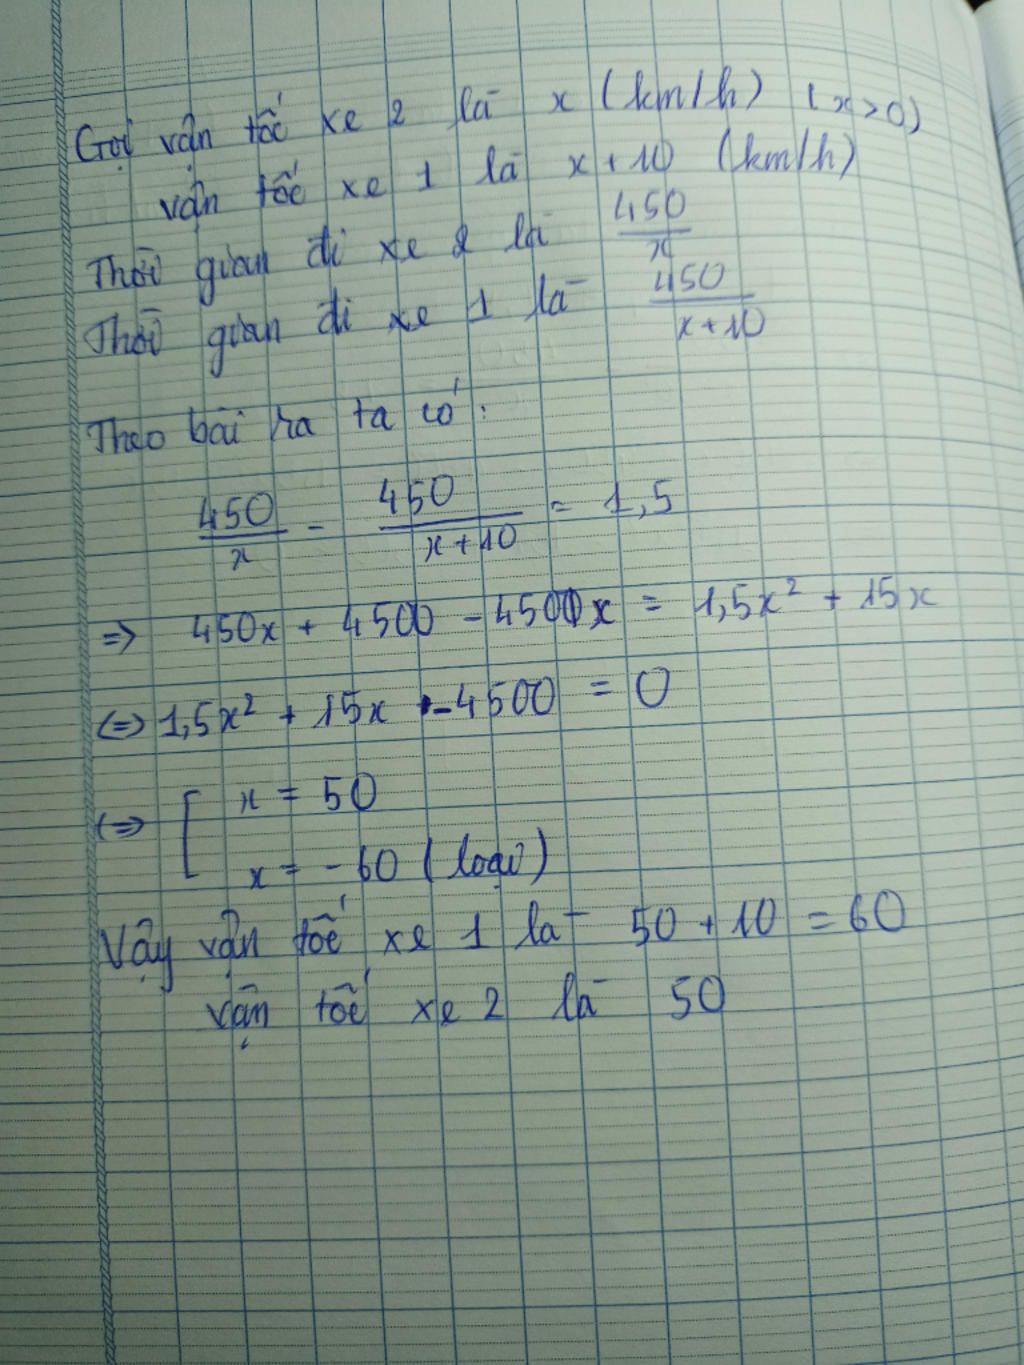 Gọi vận tốc xe 2 là x (km/h) (x>0)
vận tốc xe 1 là x + 10 (km/h)
Thời gian đi xe 2 là 450/x
Thời gian đi xe 1 là 450/(x+10)
Theo bài ra ta có:
450/x - 450/(x+10) = 1,5
=> 450x + 4500 - 4500x = 1,5x² + 15x
<=> 1,5x² + 15x - 4500 = 0
<=> [ x = 50
x = -60 (loại)
Vậy vận tốc xe 1 là 50 + 10 = 60
vận tốc xe 2 là 50